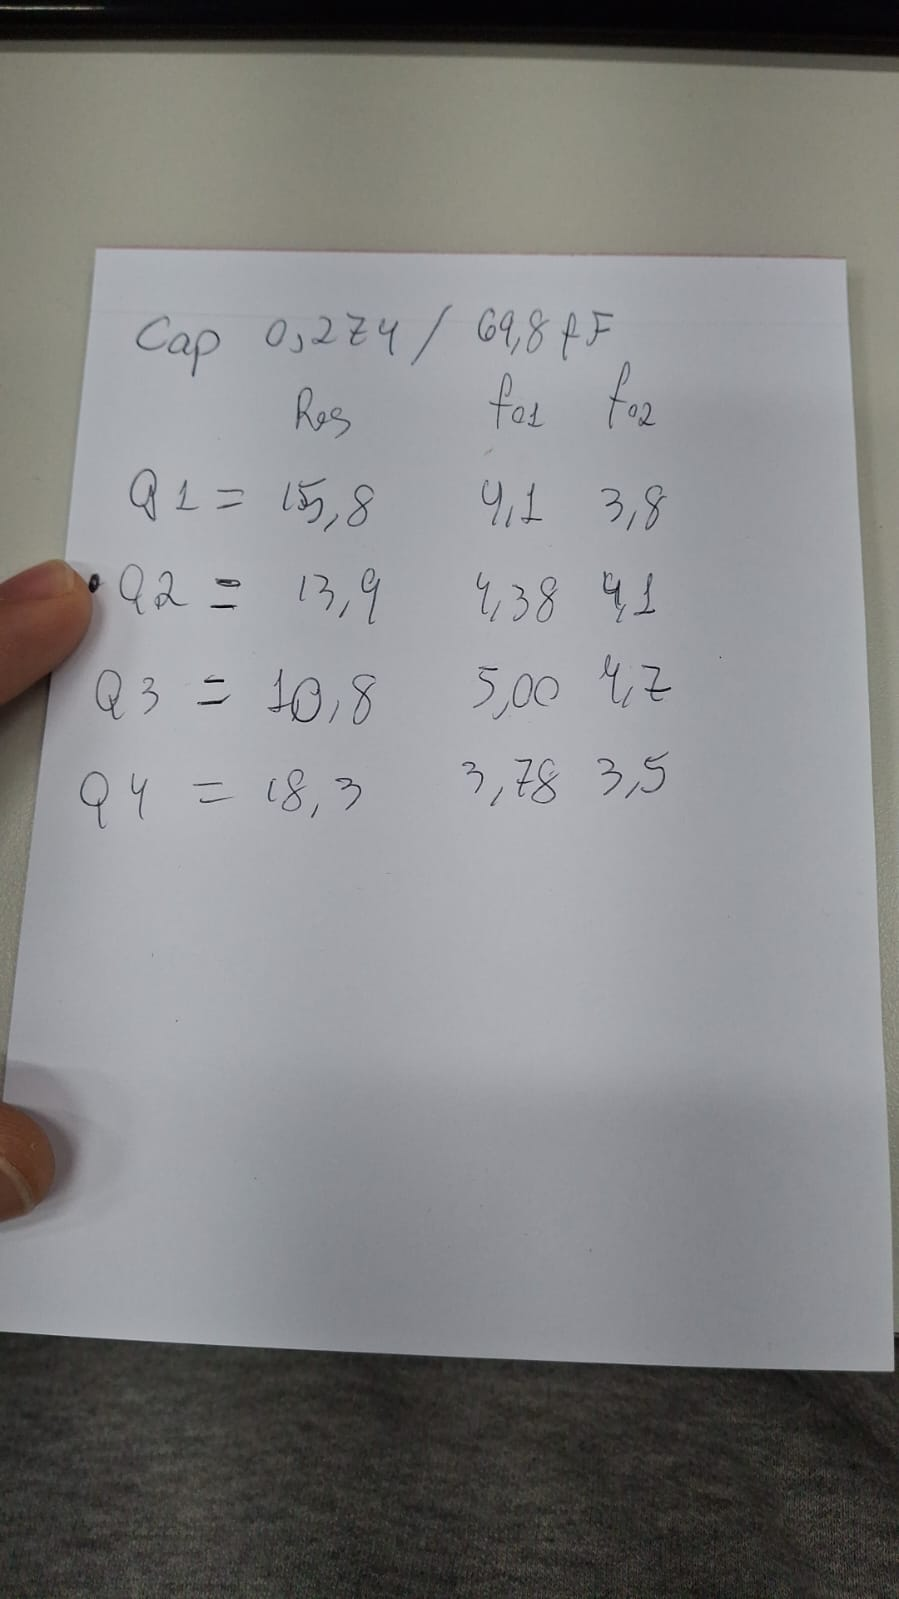 Cap 0,274 / 69,8 fF
Res f01 f02
Q1 = 15,8 4,1 3,8
Q2 = 13,9 4,38 4,1
Q3 = 10,8 5,00 4,7
Q4 = 18,3 3,78 3,5